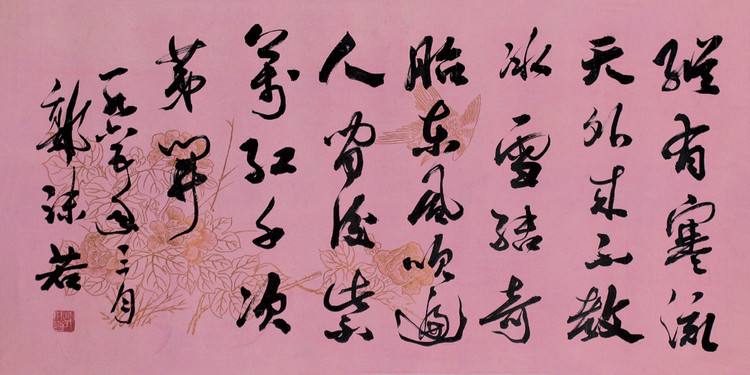 縱有寒流
天外來不教
冰雪結奇
胎東風吹遍
人間後紫
萬紅千次
第開
一九六五年三月
郭沫若